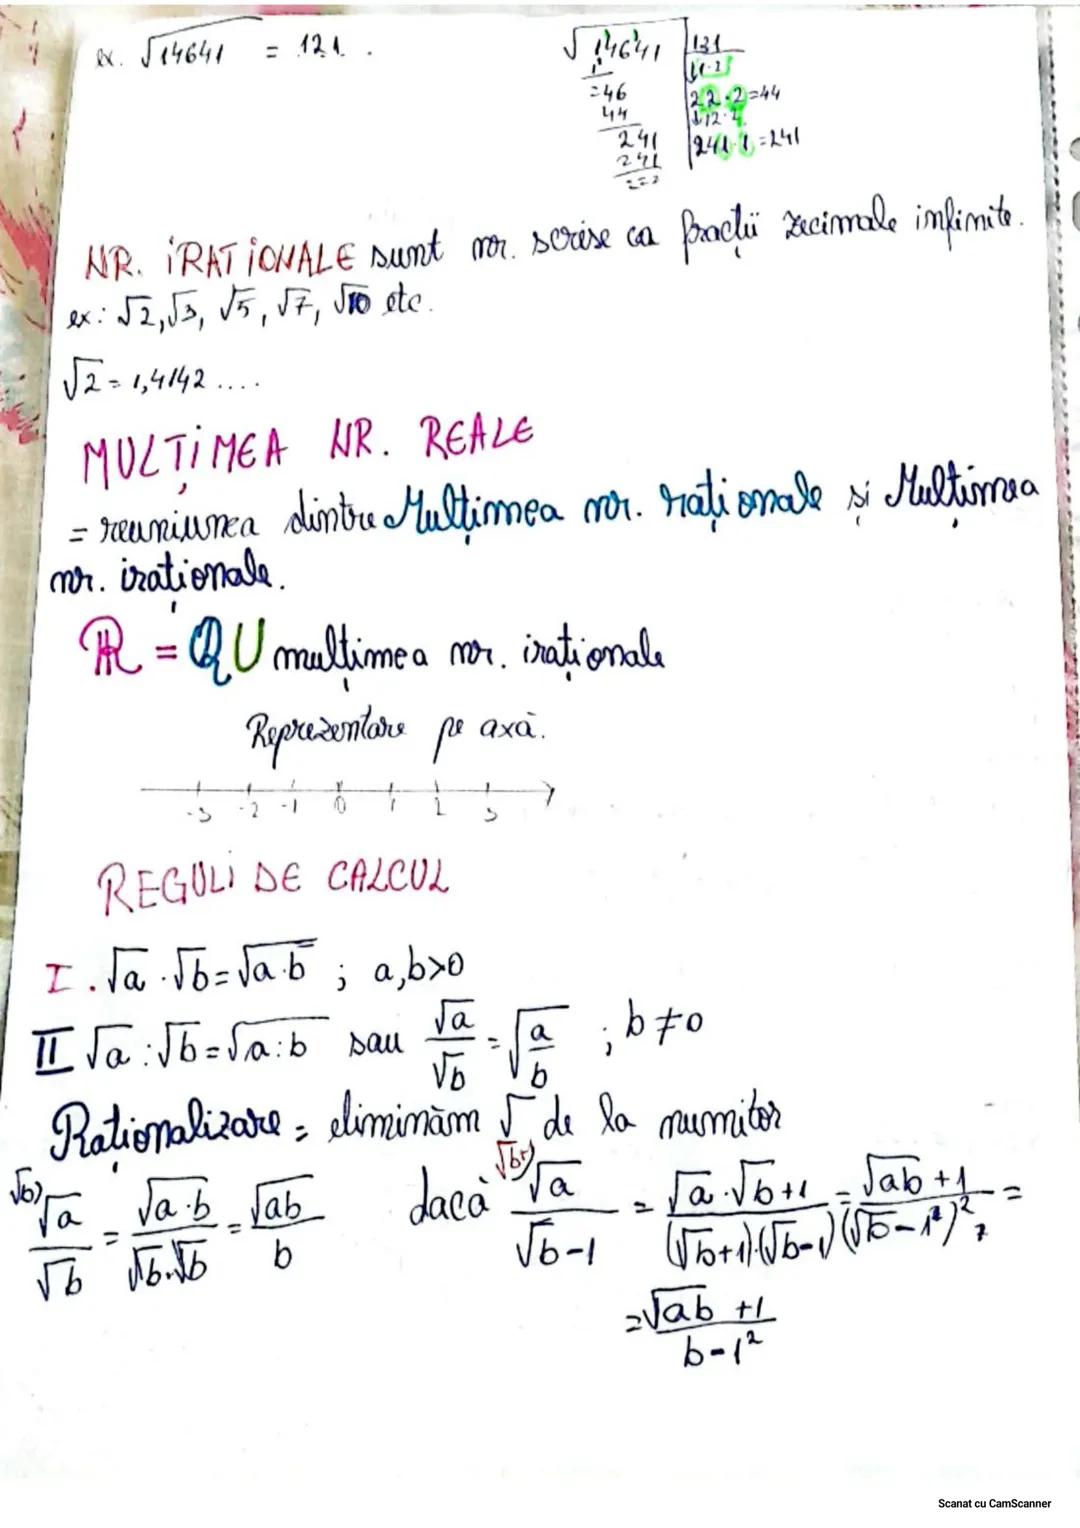 ex. √14641 = 121.
√14641 | 121
1 | 1·2
=46 | 22·2=44
44 | 12·2
241 | 241·1=241
241
===
NR. IRAȚIONALE sunt nr. scrise ca fracții zecimale infinite.
ex: √2, √3, √5, √7, √10 etc.
√2 = 1,4142 ....
MULȚIMEA NR. REALE
= reuniunea dintre Mulțimea nr. raționale și Mulțimea
nr. iraționale.
ℝ = ℚ U mulțimea nr. iraționale
Reprezentare pe axă.
-3 -2 -1 0 1 2 3
REGULI DE CALCUL
I. √a · √b = √a·b ; a,b>0
II √a : √b = √a:b sau √a/√b = √a/b ; b≠0
Raționalizare = eliminăm √ de la numitor
√b) √a/√b = √a·b/√b·√b = √ab/b dacă √a/√b-1 = √a·√b+1/(√b+1)·(√b-1) = √ab+1/(√b-1²)² =
= √ab +1/b-1²
Scanat cu CamScanner